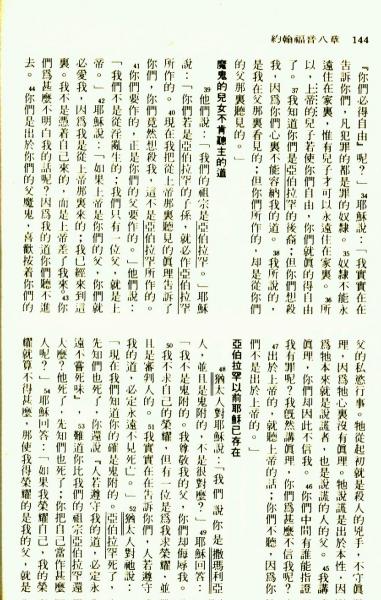 約翰福音八章 144
『你們必得自由』呢？」34耶穌說：「我實實在在
告訴你們，凡犯罪的都是罪的奴隸。35奴隸不能永
遠住在家裏，惟有兒子才可以永遠住在家裏。36所
以，上帝的兒子若使你們自由，你們就眞的得自由
了。37我知道你們是亞伯拉罕的後裔；但你們想殺
我，因爲你們心裏不能容納我的道。38我所說的，
是我在父那裏看見的；但你們所作的，却是從你們
的父那裏聽見的。」
魔鬼的兒女不肯聽主的道
39他們說：「我們的祖宗是亞伯拉罕。」耶穌
說：「你們若是亞伯拉罕的子孫，就必作亞伯拉罕
所作的。40現在我把從上帝那裏聽見的眞理告訴了
你們，你們竟然想殺我，這不是亞伯拉罕所作的。
41你們要作的，正是你們的父要作的。」他們說：
「我們不是從淫亂生的；我們只有一位父，就是上
帝。」42耶穌說：「如果上帝是你們的父，你們就
必愛我，因爲我是從上帝那裏來的；我已經來到這
裏。我不是憑着自己來的，而是上帝差了我來。43你
們爲甚麼不明白我的話呢？因爲我的道你們聽不進
去。44你們是出於你們的父魔鬼，喜歡按着你們的
父的私慾行事。牠從起初就是殺人的兇手，不守眞
理，因爲牠心裏沒有眞理。牠說謊是出於本性，因
爲牠本來就是說謊者，也是說謊的人的父。45我講
眞理，你們却因此不信我。46你們中間有誰能指證
我有罪呢？我旣然講眞理，你們爲甚麼不信我呢？
47出於上帝的，就聽上帝的話；你們不聽，因爲你
們不是出於上帝的。」
亞伯拉罕以前耶穌已存在
48猶太人對耶穌說：「我們說你是撒瑪利亞
人，並且是鬼附的，不是很對麼？」49耶穌回答：
「我不是鬼附的。我尊敬我的父，你們却侮辱我。
50我不求自己的榮耀，但有一位是爲我求榮耀，並
且是審判人的。51我實實在在告訴你們，人若遵守
我的道，必定永遠不見死亡。」52猶太人對祂說：
「現在我們知道你的確是鬼附的。亞伯拉罕死了，
先知們也死了，你還說『人若遵守我的道，必定永
遠不嘗死味。』53難道你比我們的祖宗亞伯拉罕還
大麼？他死了，先知們也死了；你把自己當作甚麼
人呢？」54耶穌回答：「如果我榮耀自己，我的榮
耀就算不得甚麼，那使我得榮耀的是我的父，就是